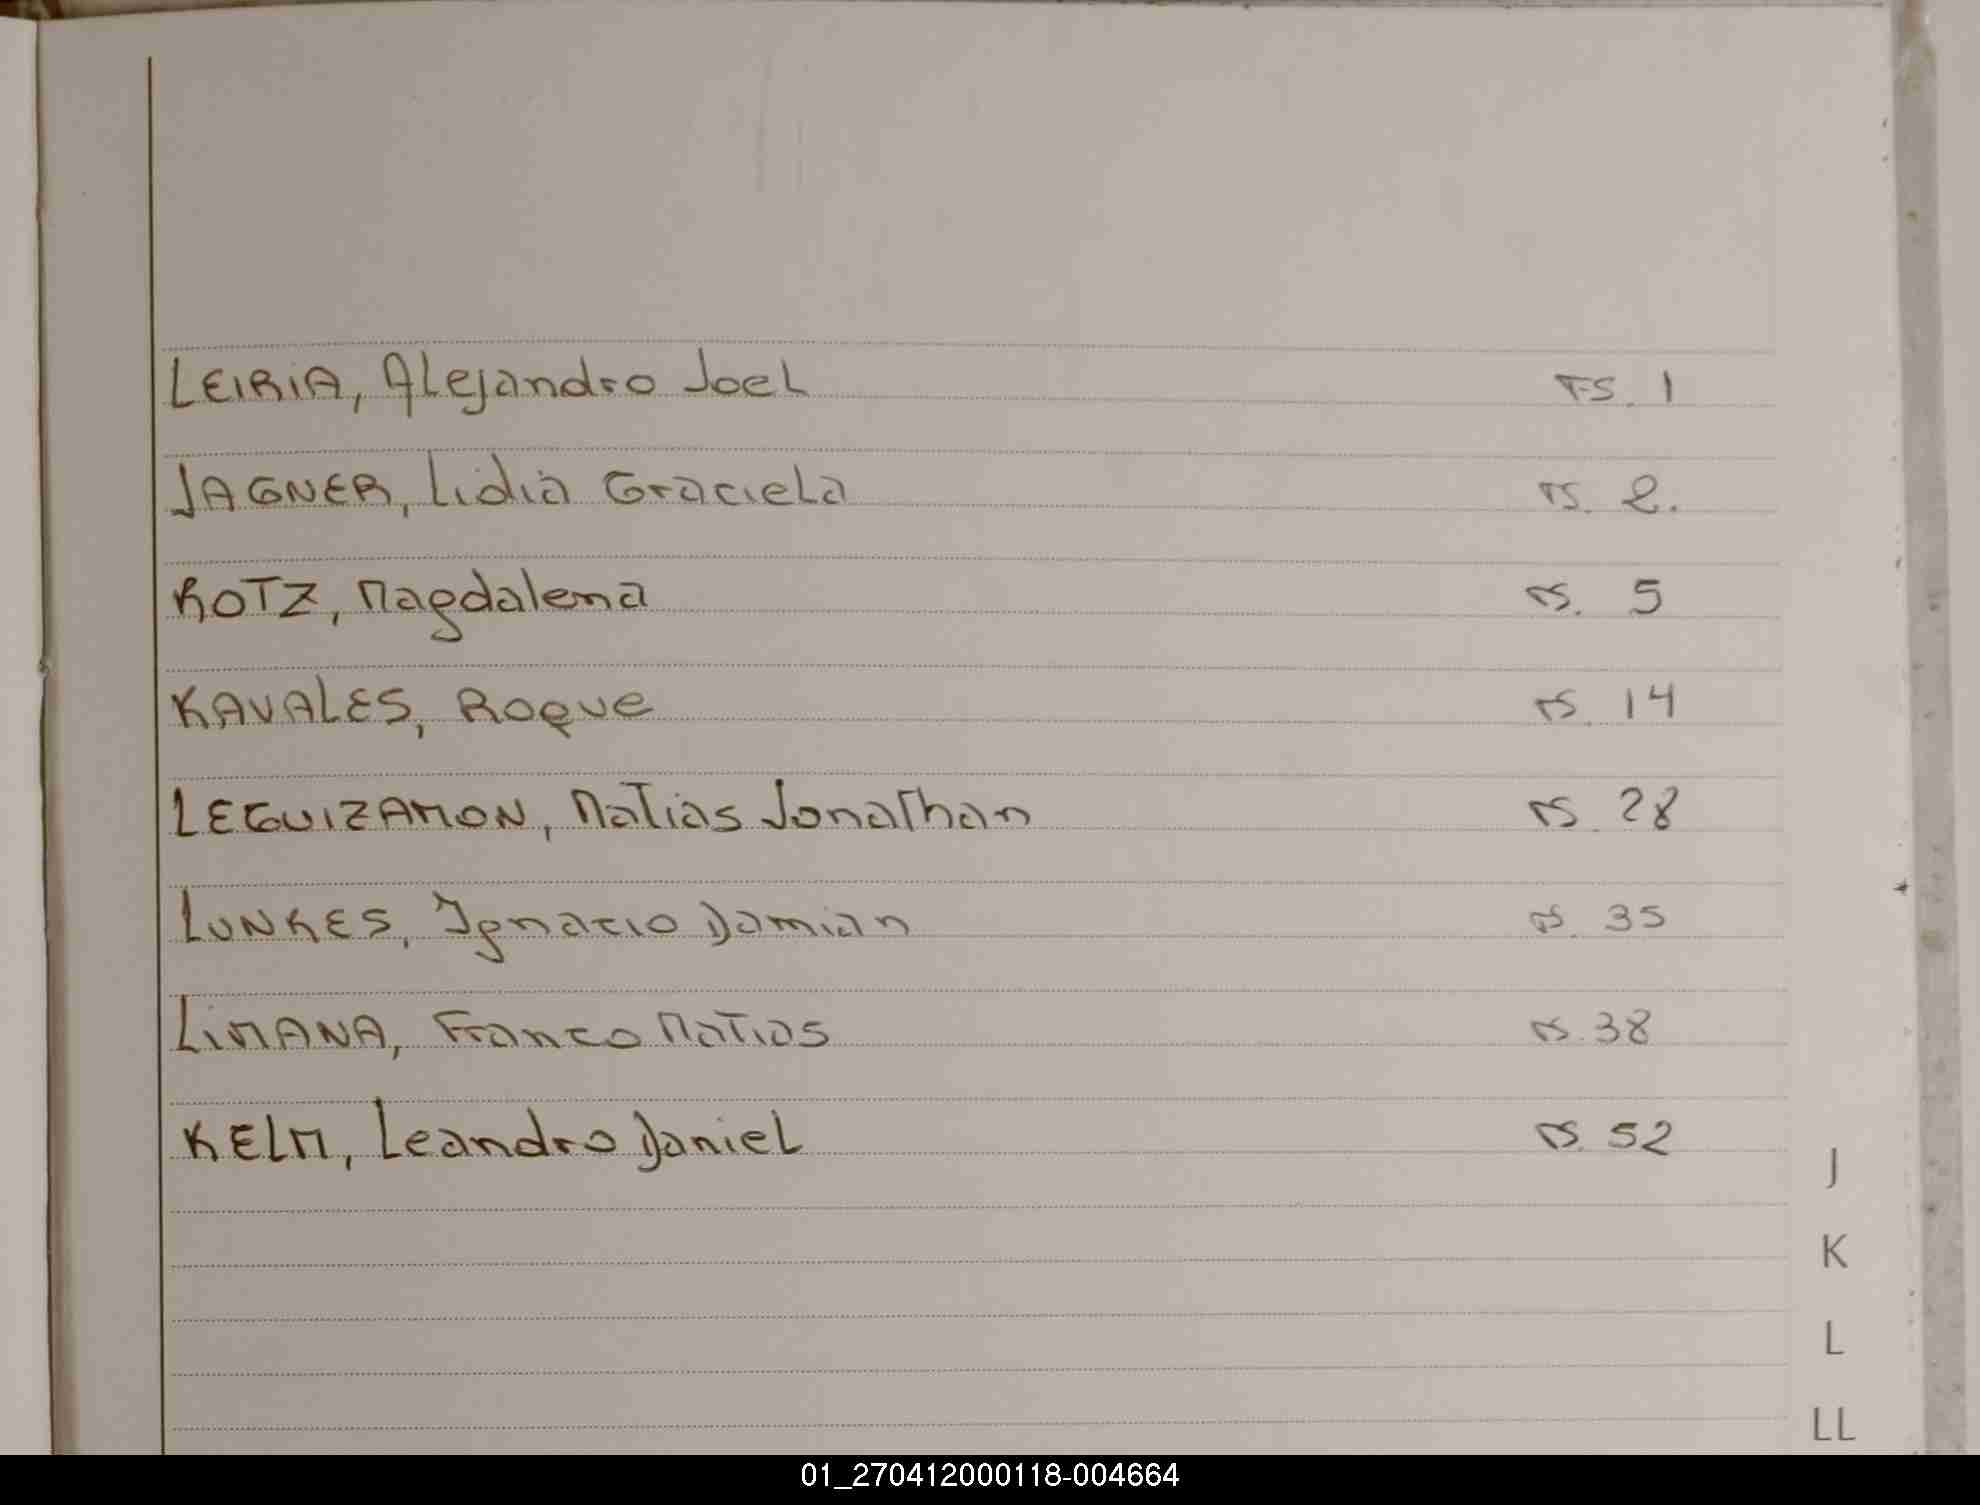 LEIRIA, Alejandro Joel FS. 1
JAGNER, Lidia Graciela FS. 2.
KOTZ, Magdalena FS. 5
KAVALES, Roque FS. 14
LEGUIZAMON, Matias Jonathan FS. 28
LUNKES, Ignacio Damian FS. 35
LIMANA, Franco Matias FS. 38
KELM, Leandro Daniel FS. 52
J
K
L
LL
01_270412000118-004664